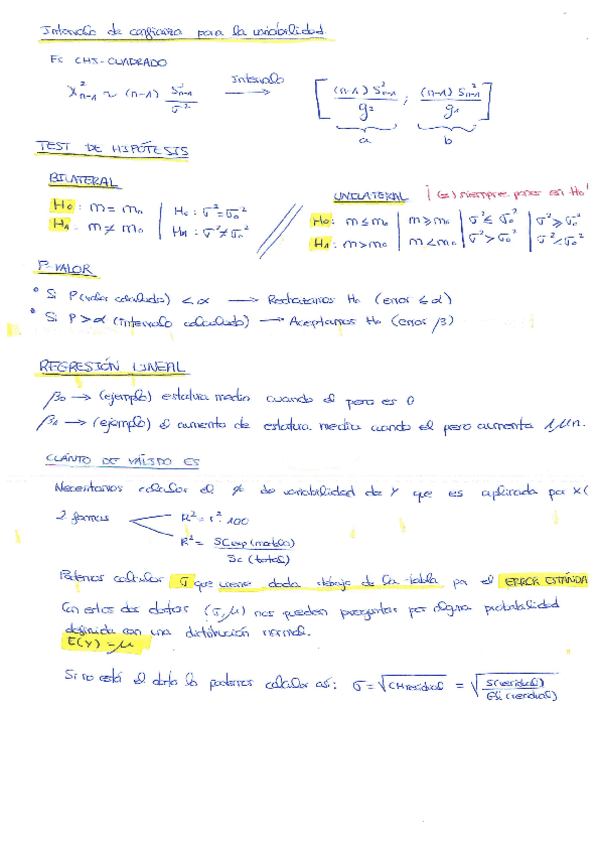 Intervalo de confianza para la variabilidad.
Es CHI-CUADRADO
X²n-1 ~ (n-1) S²n-1 / σ² Intervalo → [ (n-1) S²n-1 / g2 ; (n-1) S²n-1 / g1 ]
a b
TEST DE HIPÓTESIS
BILATERAL
UNILATERAL ¡(=) siempre poner en Ho!
Ho: m = mo | Ho: σ² = σo²
H1: m ≠ mo | H1: σ² ≠ σo²
Ho: m ≤ mo | m ≥ mo | σ² ≤ σo² | σ² ≥ σo²
H1: m > mo | m < mo | σ² > σo² | σ² < σo²
P-VALOR
• Si P (valor calculado) < α → Rechazamos Ho (error ≤ α)
• Si P > α (intervalo calculado) → Aceptamos Ho (error β)
REGRESIÓN LINEAL
β0 → (ejemplo) estatura media cuando el peso es 0
β1 → (ejemplo) el aumento de estatura media cuando el peso aumenta 1 un.
CUÁNTO DE VÁLIDO ES
Necesitamos calcular el % de variabilidad de Y que es aplicada por X(
2 formas
R² = r² · 100
R² = SCexp (modelo) / Sc (total)
Podemos calcular σ que viene dada debajo de la tabla por el ERROR ESTÁNDA
Con estos dos datos (σ, μ) nos pueden preguntar por alguna probabilidad
definida con una distribución normal.
E(Y) = μ
Si no está el dato lo podemos calcular así: σ = √CMresidual = √S(residual) / GL(residual)